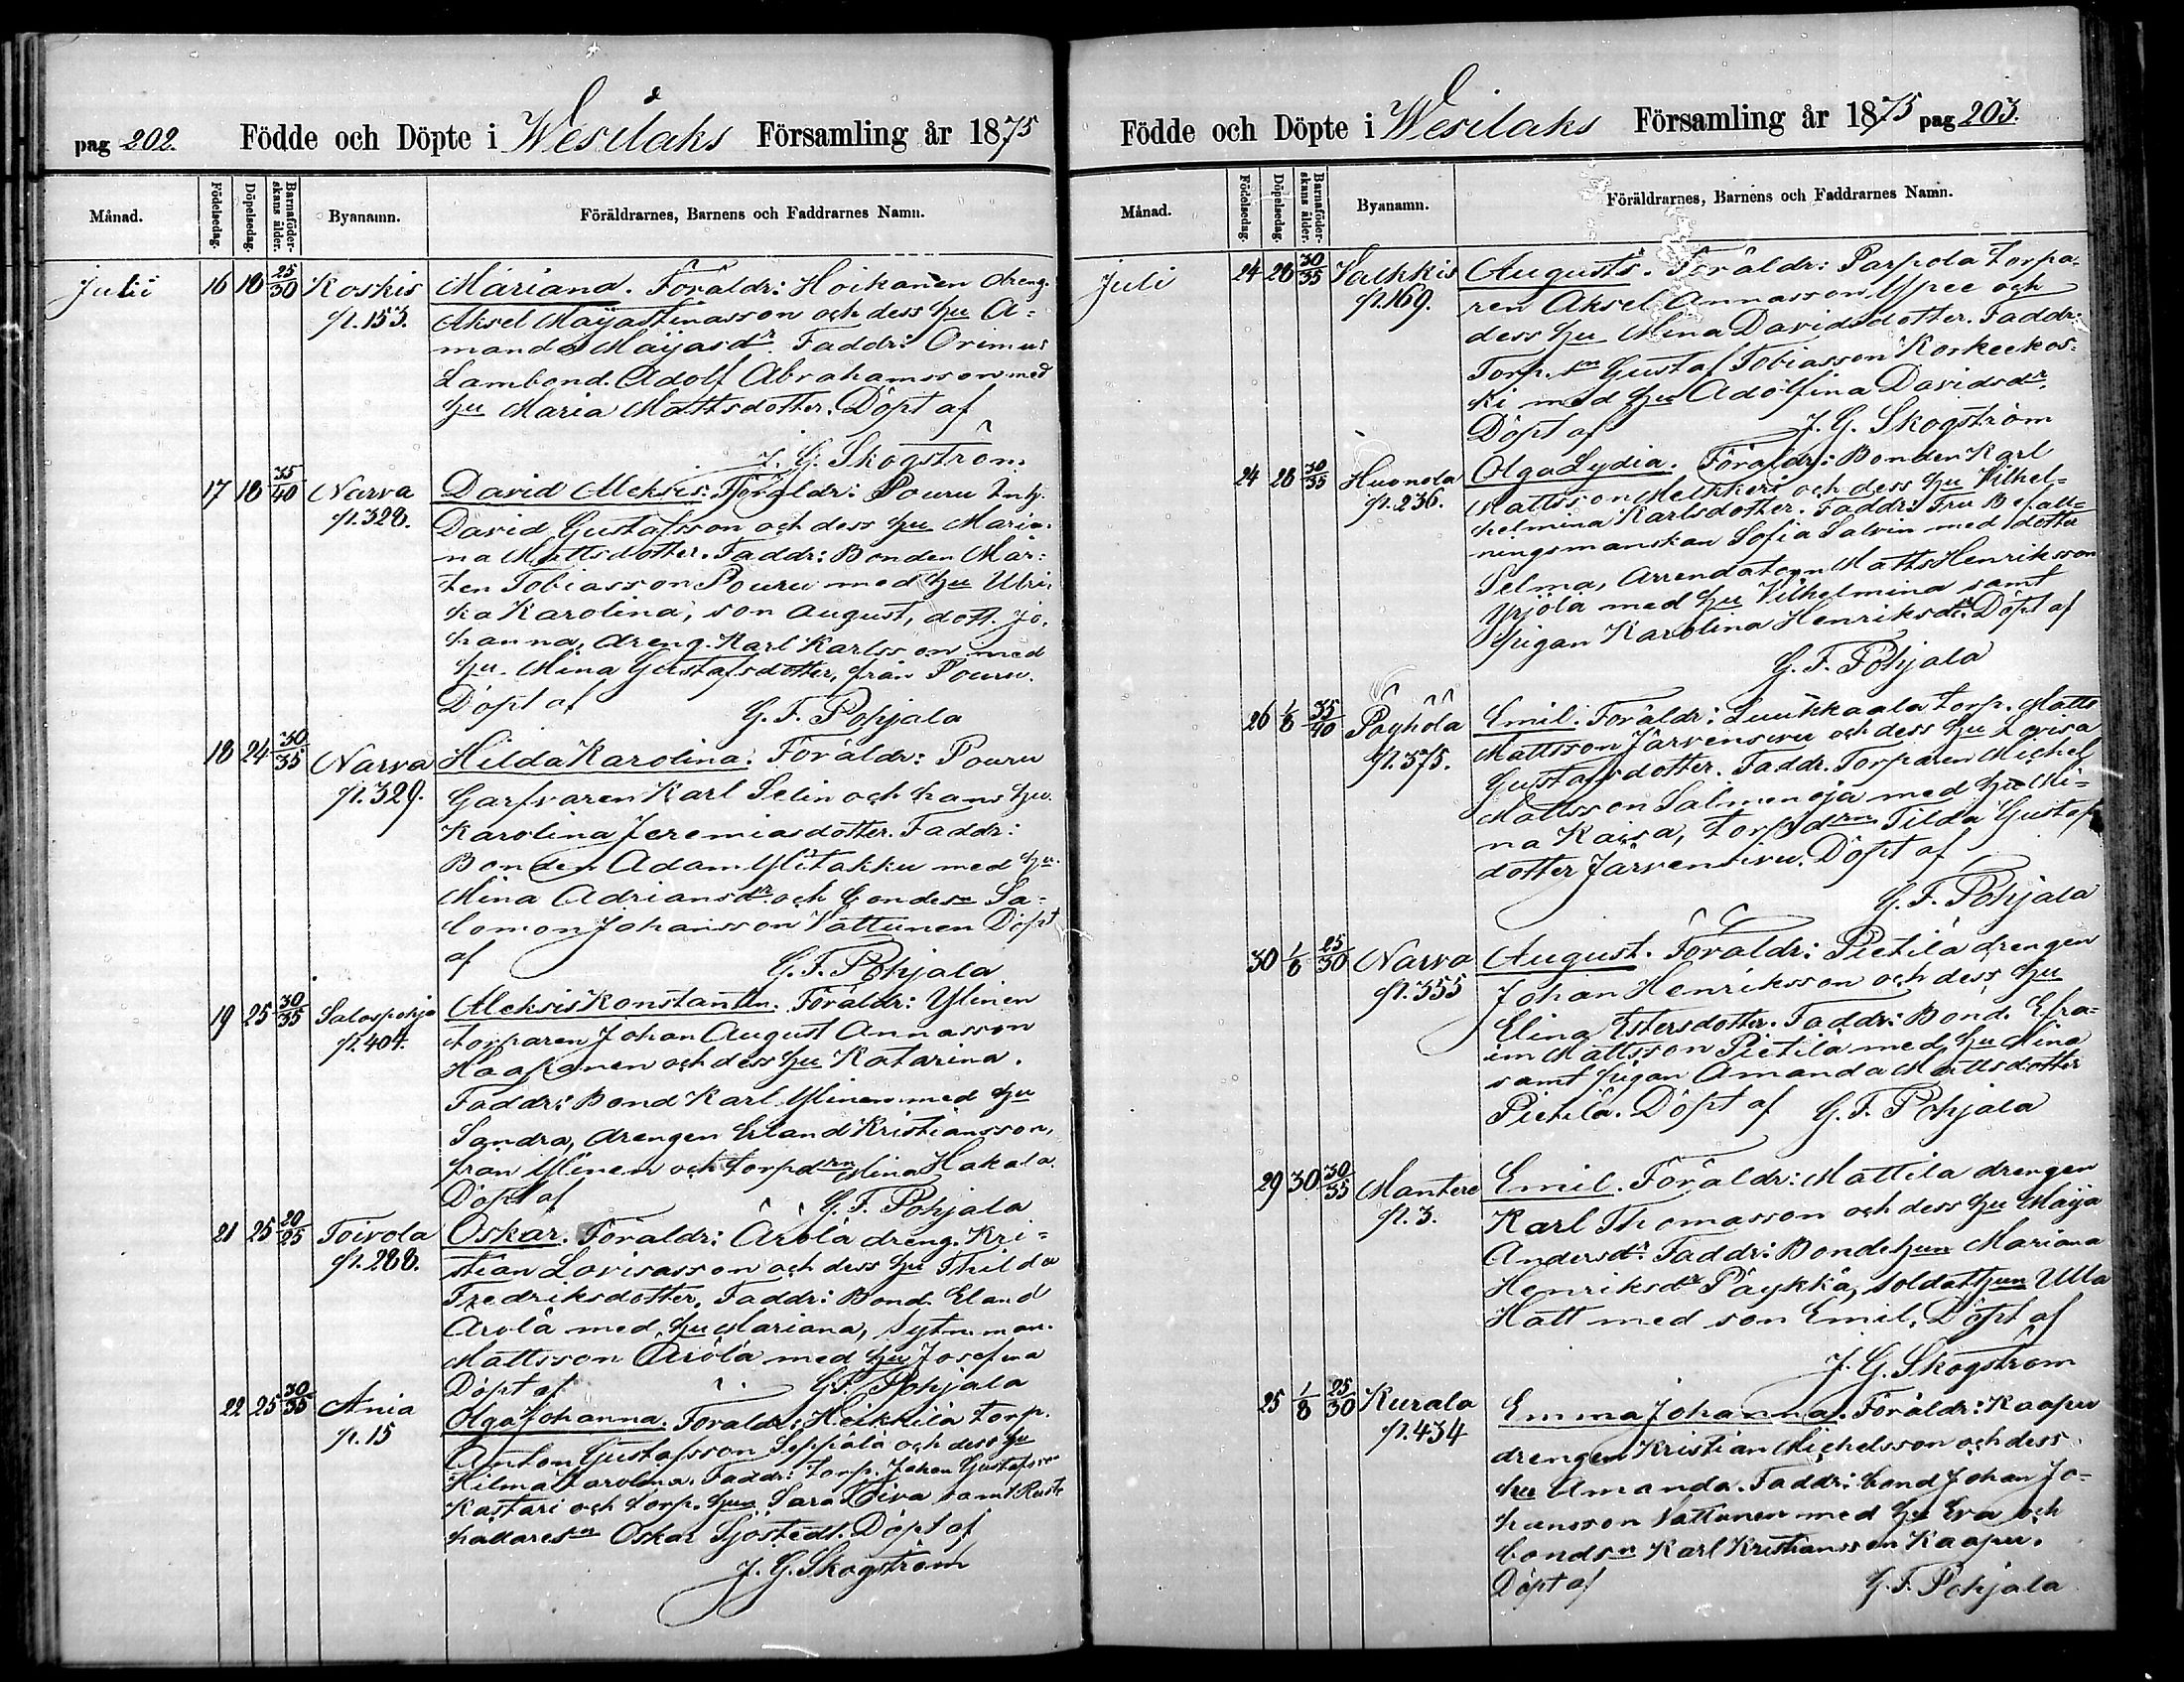 pag 202. Födde och Döpte i Wesilaks Församling år 1875
Månad. Födelsedag. Döpelsedag. Barnaföderskans ålder. Byanamn. Föräldrarnes, Barnens och Faddrarnes Namn.
Juli 16 18 25/30 Koskis Mariana. Föräldr: Hoikanen dreng.
p. 153. Aksel Maijastinasson och dess hu A-
manda Maijasdr. Faddr: Orimus
Lambond. Adolf Abrahamsson med
hu Maria Mattsdotter. Döpt af
J. G. Skogström.
17 18 35/40 Narva David Aleksis. Föräldr: Pouru Inh.
p. 328. David Gustafsson och dess hu Maria-
na Mattsdotter. Faddr: Bonden Mår-
ten Tobiasson Pouru med hu Ulri-
ka Karolina, son August, dott. Jo-
hanna, dreng. Karl Karlsson med
hu. Mina Gustafsdotter, från Pouru.
Döpt af G. F. Pohjala
18 24 30/35 Narva Hilda Karolina. Föräldr: Pouru
p. 329. Garfvaren Karl Selin och hans hu.
Karolina Jeremiasdotter. Faddr:
Bonden Adam Ylitakku med hu.
Mina Adriansdr och bondesn Sa-
lomon Johansson Vattunen Döpt
af G. F. Pohjala
19 25 30/35 Salospohja Aleksis Konstantin. Föräldr: Ylinen
p. 404. torparen Johan August Annasson
Haapanen och dess hu Katarina.
Faddr: Bond Karl Ylinen med hu
Sandra, drengen Erland Kristiansson,
från Ylinen och torpdrn Mina Hakala
Döpt af G. F. Pohjala
21 25 20/25 Toivola Oskar. Föräldr: Ärölä dreng. Kri-
p. 288. stian Lovisasson och dess hu Thilda
Fredriksdotter. Faddr: Bond. Eland
Ärölä med hu Mariana, Sytn. man.
Mattsson Ärölä med hu Josefina
Döpt af G. F. Pohjala
22 25 30/35 Ania Olga Johanna. Föräldr: Heikkilä torp.
p. 15 Anton Gustafsson Seppälä och dess hu
Hilma Karolina. Faddr: Torp. Johan Gustafsson
Kastari och torp. hun Sara samt Rust-
hållaresn Oskar Sjöstedt. Döpt af
J. G. Skogström
Födde och Döpte i Wesilaks Församling år 1875 pag 203.
Månad. Födelsedag. Döpelsedag. Barnaföderskans ålder. Byanamn. Föräldrarnes, Barnens och Faddrarnes Namn.
Juli 24 28 30/35 Valkkis August. Föräldr: Parpola torpa-
p. 169. ren Aksel Annasson Ypee och
dess hu Mina Davidsdotter. Faddr:
Torp. sn Gustaf Tobiasson Korkeekos-
ki med hu Adolfina Davidsdr.
Döpt af J. G. Skogström
24 28 30/35 Huonola Olga Lydia. Föräldr: Bonden Karl
p. 236. Mattsson Melkkeri och dess hu Vilhel-
helmina Karlsdotter. Faddr: Fru Befall-
ningsmanskan Sofia Salvin med dotter
Selma, Arrendatorn Matts Henriksson
Yrjölä med hu Vilhelmina samt
pigan Karolina Henriksdr. Döpt af
G. F. Pohjala
26 1/8 35/40 Päyhölä Emil. Föräldr: Luukkaala torp. Matts
p. 375. Mattsson Järvensivu och dess hu Lovisa
Gustafsdotter. Faddr. Torparen Michel
Mattsson Salmenoja med hu Mi-
na Kaisa, torpdrn Tilda Gustafs
dotter Järvensivu. Döpt af
G. F. Pohjala
30 1/8 25/30 Narva August. Föräldr: Pietilä drengen
p. 355 Johan Henriksson och dess hu
Elina Estersdotter. Faddr: Bond. Efra-
im Mattsson Pietilä med hu Mina
samt pigan Amanda Mattsdotter
Pietilä. Döpt af G. F. Pohjala
29 30 30/35 Mantere Emil. Föräldr: Mattila drengen
p. 3. Karl Thomasson och dess hu Maija
Andersdr. Faddr: Bondehun Mariana
Henriksdr Päykkä, soldathun Ulla
Hatt med son Emil. Döpt af
J. G. Skogström
25 1/8 25/30 Kurala Emma Johanna. Föräldr: Kaapu
p. 434 drengen Kristian Michelsson och dess
hu Amanda. Faddr: bond Johan Jo-
hansson Vattunen med hu Eva och
bondsn Karl Kristiansson Kaapu.
Döpt af G. F. Pohjala